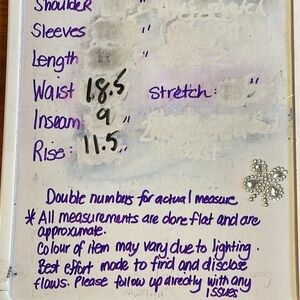 Shoulder "
Sleeves "
Length "
Waist 18.5 Stretch: "
Inseam 9 "
Rise: 11.5 "
Double numbers for actual measure
* All measurements are done flat and are
approximate.
Colour of item may vary due to lighting.
Best effort made to find and disclose
flaws. Please follow up directly with any
issues